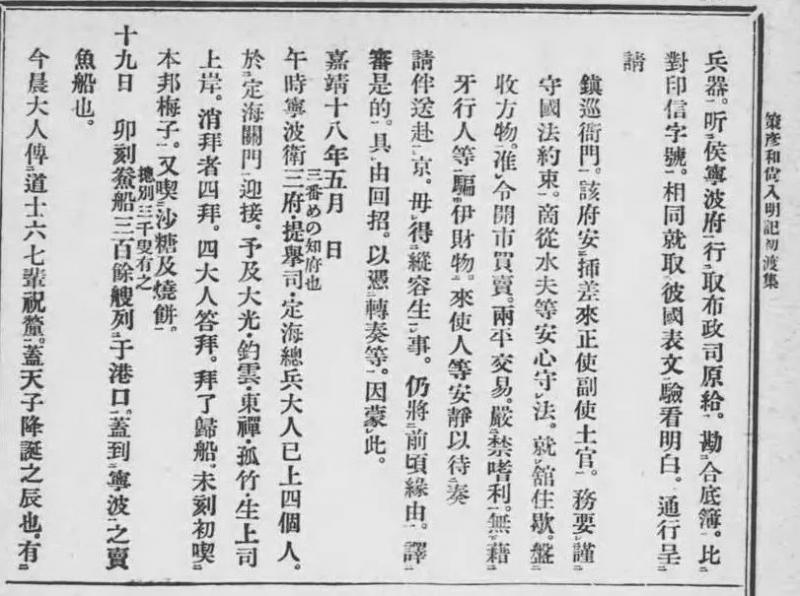 策彦和尚入明記初渡集
兵器。聽侯寧波府行取布政司原給。勘合底簿。比
對印信字號。相同就取彼國表文驗看明白。通行呈
請
鎮巡衙門。該府安插差來正使副使土官。務要謹
守國法約束。商從水夫等安心守法。就館住歇。盤
收方物。准令開市買賣。兩平交易。嚴禁嗜利。無藉
牙行人等騙伊財物。來使人等安靜以待奏
請伴送赴京。毋得縱容生事。仍將前頃緣由。譯
審是的。具由回招。以憑轉奏等。因蒙此。
嘉靖十八年五月　日
午時寧波衛三府提擧司・定海總兵大人已上四個人。
三番めの知府也
於定海關門迎接。予及大光・釣雲・東禪・孤竹・生上司
上岸。消拜者四拜。四大人答拜。拜了歸船。未刻初喫
本邦梅子。又喫沙糖及燒餠。
十九日　卯刻鯗船三百餘艘列于港口。蓋到寧波之賣
摠別三千叟有之
魚船也。
今晨大人俾道士六七輩祝釐。蓋天子降誕之辰也。有